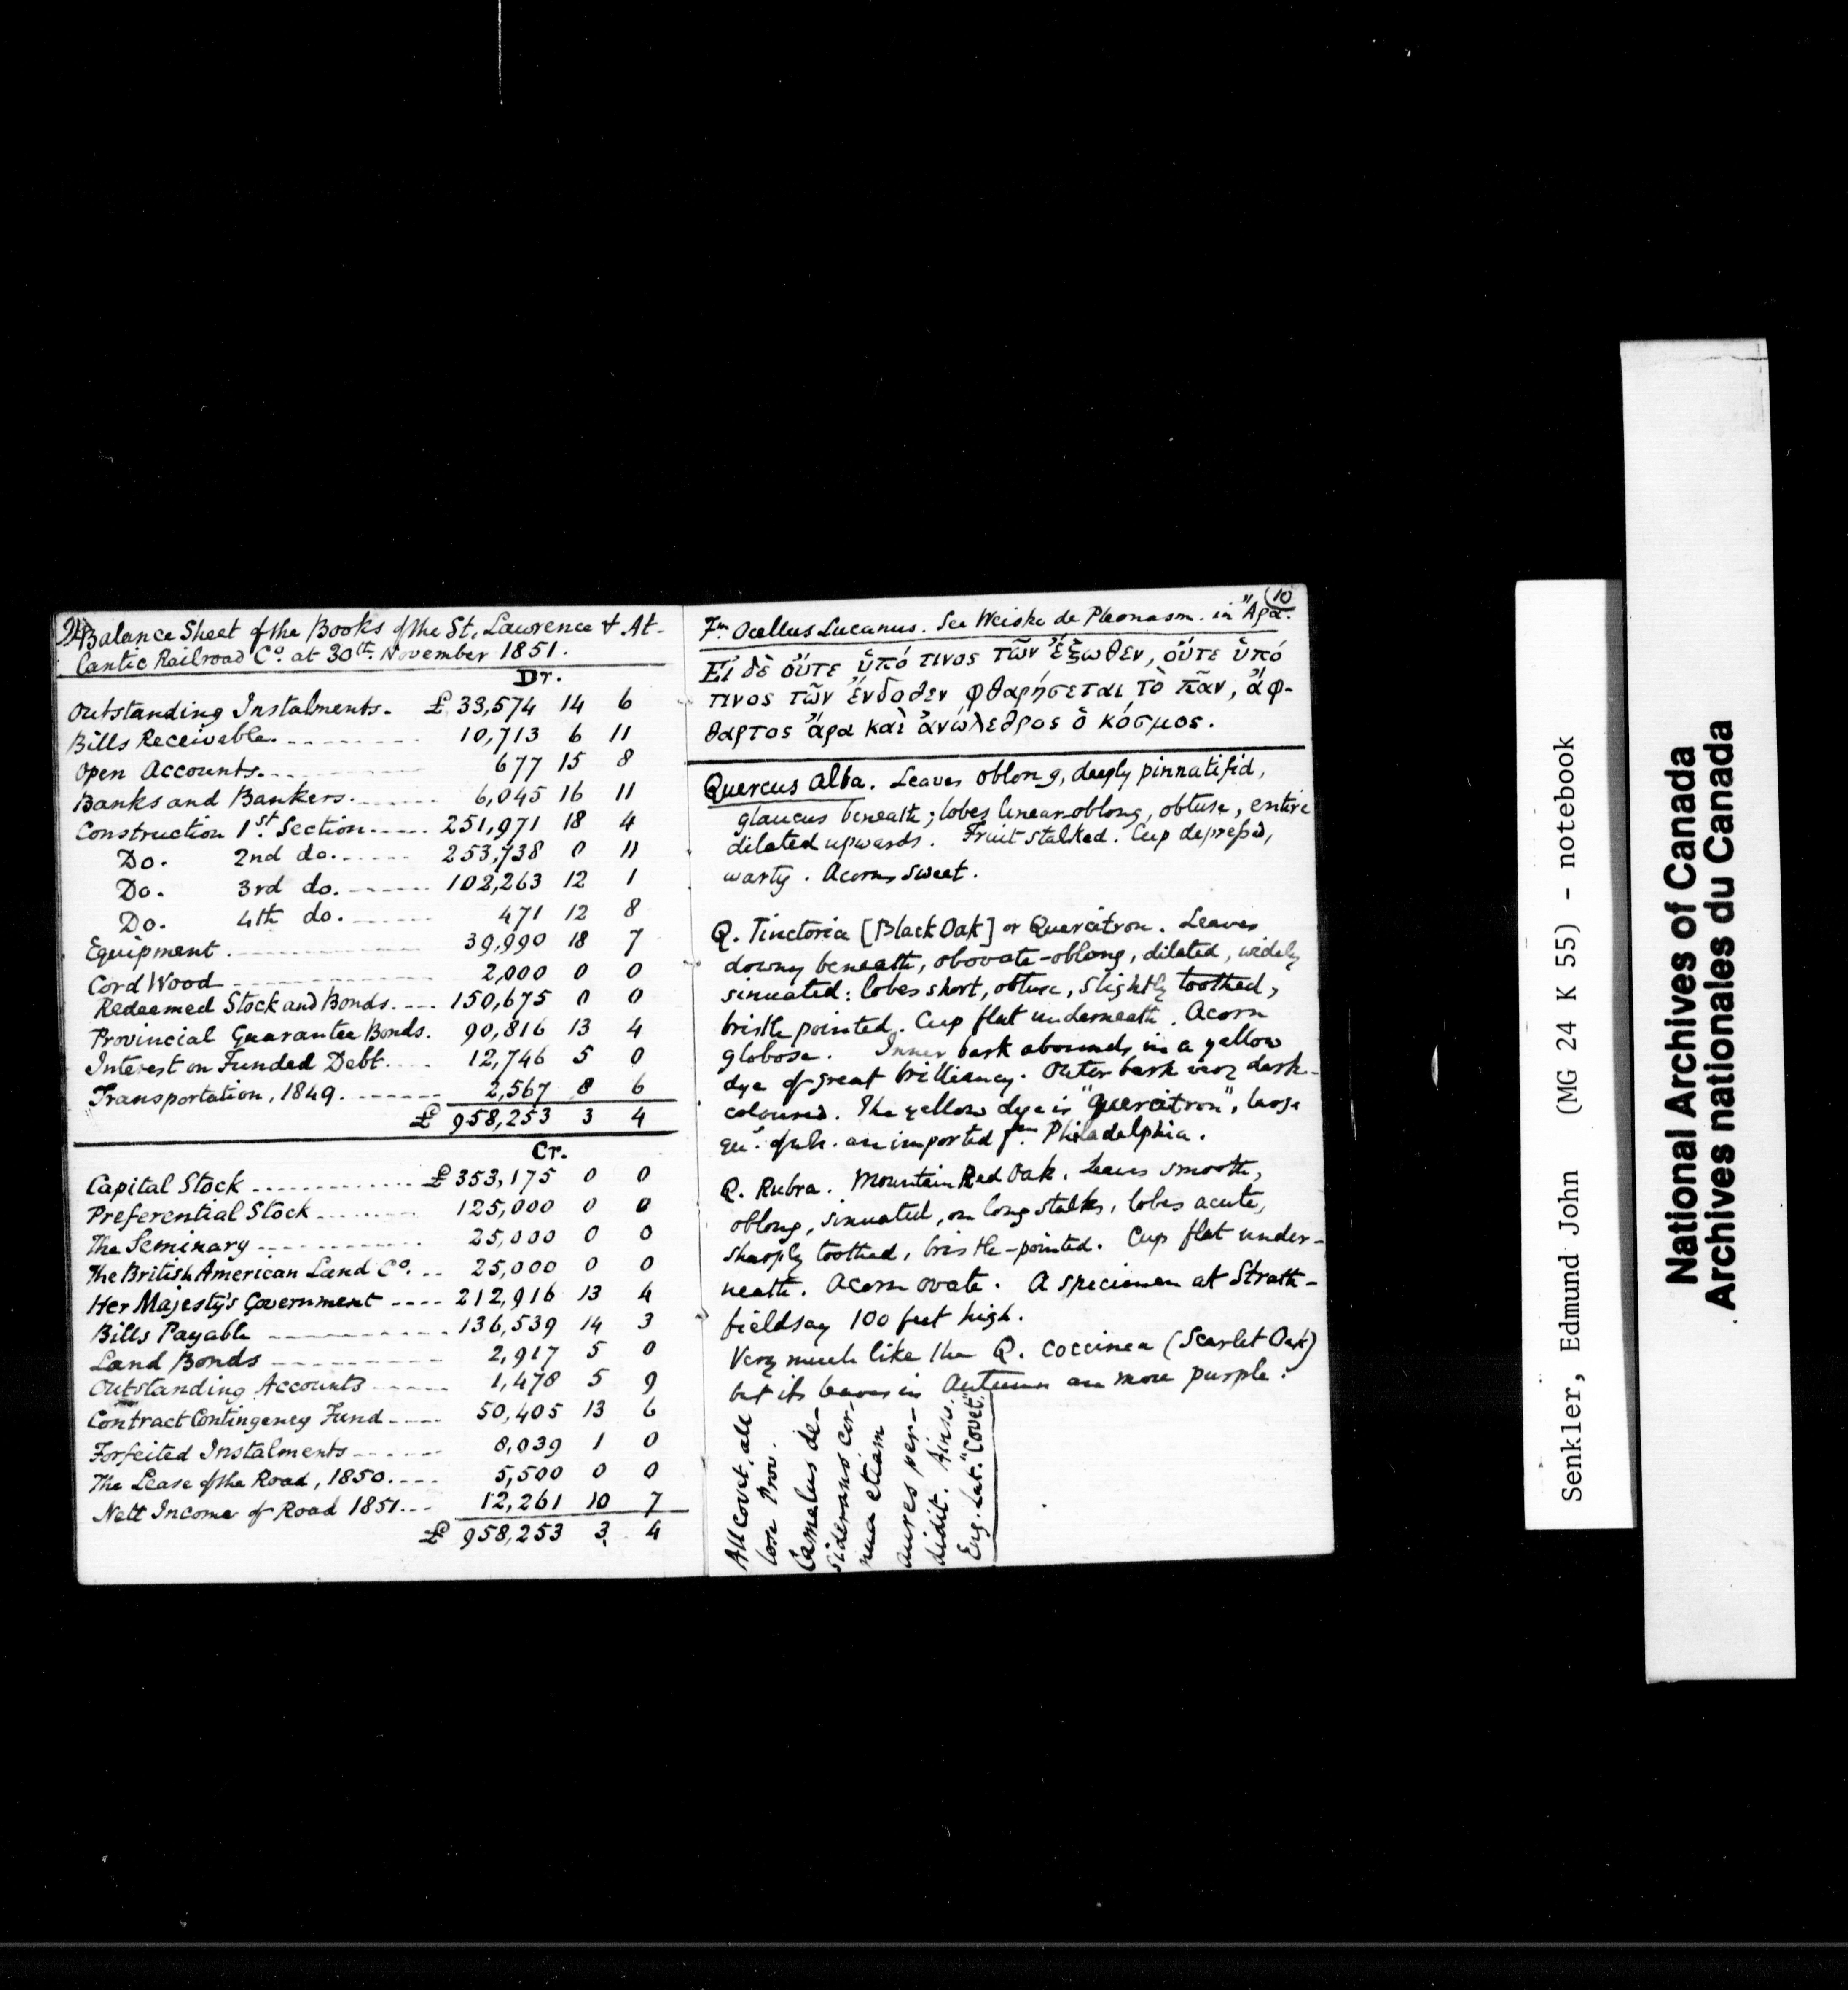 Balance Sheet of the Books of the St. Lawrence & At-
lantic Railroad Co. at 30th. November 1851.
Dr.
Outstanding Instalments. £ 33,574 14 6
Bills Receivable. 10,713 6 11
Open Accounts. 677 15 8
Banks and Bankers. 6,045 16 11
Construction 1st. Section. 251,971 18 4
Do. 2nd do. 253,738 0 11
Do. 3rd do. 102,263 12 1
Do. 4th do. 471 12 8
Equipment. 39,990 18 7
Cord Wood 2,000 0 0
Redeemed Stock and Bonds. 150,675 0 0
Provincial Guarantee Bonds. 90,816 13 4
Interest on Funded Debt. 12,746 5 0
Transportation, 1849. 2,567 8 6
£ 958,253 3 4
Cr.
Capital Stock £ 353,175 0 0
Preferential Stock 125,000 0 0
The Seminary 25,000 0 0
The British American Land Co. 25,000 0 0
Her Majesty's Government 212,916 13 4
Bills Payable 136,539 14 3
Land Bonds 2,917 5 0
Outstanding Accounts 1,478 5 9
Contract Contingency Fund 50,405 13 6
Forfeited Instalments 8,039 1 0
The Lease of the Road, 1850. 5,500 0 0
Nett Income of Road 1851. 12,261 10 7
£ 958,253 3 4
(10)
Fm. Ocellus Lucanus. See Weiske de Pleonasm. in Ἄρα.
Εἰ δὲ οὔτε ὑπό τινος τῶν ἔξωθεν, οὔτε ὑπό
τινος τῶν ἔνδοθεν φθαρήσεται τὸ πᾶν, ἄφ-
θαρτος ἄρα καὶ ἀνώλεθρος ὁ κόσμος.
Quercus Alba. Leaves oblong, deeply pinnatifid,
glaucus beneath; lobes linear-oblong, obtuse, entire
dilated upwards. Fruit stalked. Cup depressed,
warty. Acorns sweet.
Q. Tinctoria [Black Oak] or Quercitron. Leaves
downy beneath, obovate-oblong, dilated, widely
sinuated: lobes short, obtuse, slightly toothed,
bristle pointed. Cup flat underneath. Acorn
globose. Inner bark abounds in a yellow
dye of great brilliancy. Outer bark very dark-
coloured. The yellow dye is "quercitron", large
qu. of wh. are imported fm. Philadelphia.
Q. Rubra. Mountain Red Oak. Leaves smooth,
oblong, sinuated, on long stalks, lobes acute,
sharply toothed, bristle-pointed. Cup flat under-
neath. Acorn ovate. A specimen at Strath-
fieldsay 100 feet high.
Very much like the Q. coccinea (Scarlet Oak)
but its leaves in Autumn are more purple.
All covet, all
lose Prov.
Camelus de-
siderans cor-
nua etiam
aures per-
didit. Ainsw.
Eng. Lat. "Covet."
Senkler, Edmund John (MG 24 K 55) - notebook
National Archives of Canada
Archives nationales du Canada